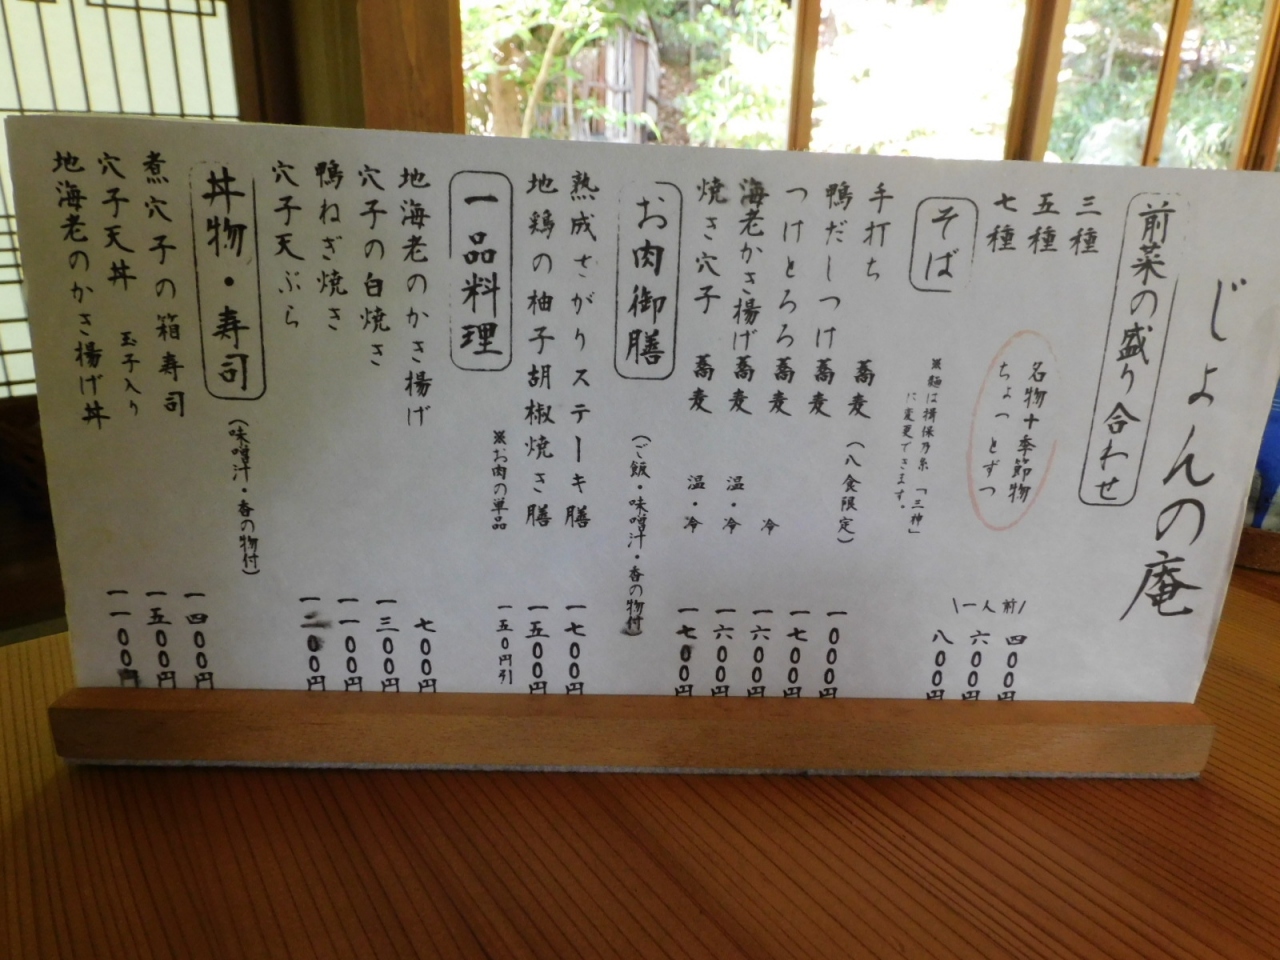 じょんの庵
前菜の盛り合わせ
三種 四〇〇円
五種 六〇〇円
七種 八〇〇円
\一人前/
名物十季節物
ちょっとずつ
そば
※麺は揖保乃糸「三神」
に変更できます。
手打ち蕎麦(八食限定) 一〇〇〇円
鴨だしつけ蕎麦 一七〇〇円
つけとろろ蕎麦 冷 一六〇〇円
海老かき揚げ蕎麦 温・冷 一六〇〇円
焼き穴子蕎麦 温・冷 一七〇〇円
お肉御膳
(ご飯・味噌汁・香の物付)
熟成さがりステーキ膳 一七〇〇円
地鶏の柚子胡椒焼き膳 一五〇〇円
※お肉の単品 一五〇円引
一品料理
地海老のかき揚げ 七〇〇円
穴子の白焼き 一三〇〇円
鴨ねぎ焼き 一一〇〇円
穴子天ぷら 一二〇〇円
丼物・寿司
(味噌汁・香の物付)
煮穴子の箱寿司 一四〇〇円
穴子天丼 玉子入り 一五〇〇円
地海老のかき揚げ丼 一一〇〇円